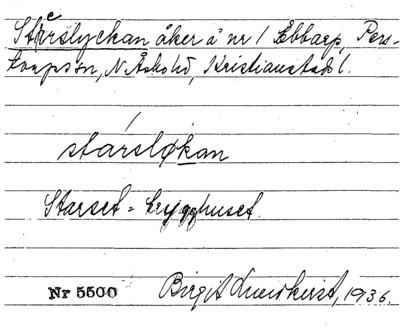 Starslyckan åker å nr 1 Ebbarp, Pers-
torps sn, N. Åsbo hd, Kristianstads l.
stársløkan
Starset = brygghuset.
Nr 5500 Birgit Lundkvist, 1936.